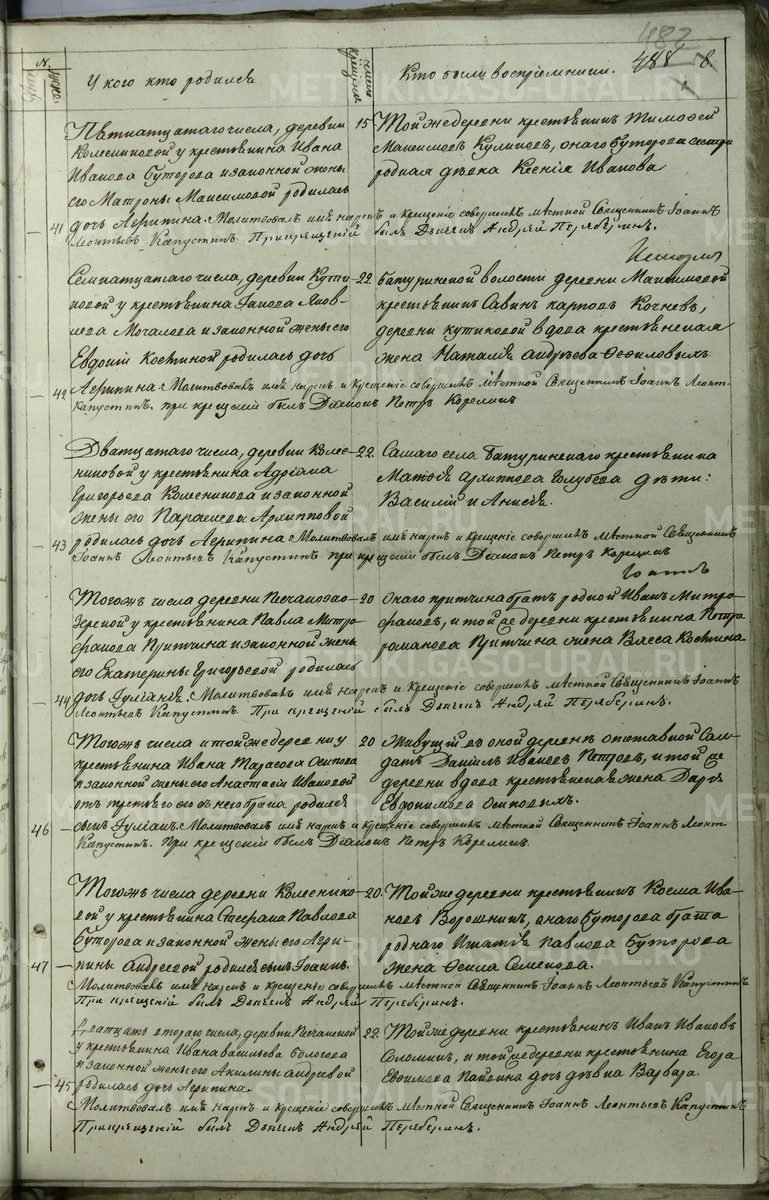 487
488
N.
У кого кто родился
число крещенія
Кто были воспріемники.
Пятнатцатаго числа, деревни
Колесниковой у крестьянина Ивана
Иванова Буторова и законной жены
его Матроны Максимовой родилась
41 дочь Агрипина. Молитвовалъ имя нарекъ и Крещеніе совершилъ мѣстной Священникъ Іоаннъ
Леонтьевъ Капустинъ При крещеній былъ Дьячекъ Андрей
15 Той же деревни крестьянинъ Тимофей
Максимовъ Куликовъ, онаго Буторова сестра
родная дѣвка Ксенія Иванова
Семнатцатаго числа, деревни Кути-
ковой у крестьянина Іакова Яков-
лева Мочалова и законной жены его
Евдокіи Костиной родилась дочь
42 Агрипина. Молитвовалъ имя нарекъ и Крещеніе совершилъ Мѣстной Священникъ Іоаннъ Леонт.
Капустинъ. при крещеніи былъ Діаконъ Петръ Корелинъ
22. Батуринской волости деревни Максимовой
крестьянинъ Савинъ Карповъ Кочневъ,
деревни Кутиковой вдова крестьянская
жена Наталія Андреева
Дватцатаго числа, деревни Колес-
никовой у крестьянина Адріана
Григорьева Колесникова и законной
жены его Параскевы Архиповой
43 родилась дочь Агрипина. Молитвовалъ имя нарекъ и Крещеніе совершилъ Мѣстной Священникъ
Іоаннъ Леонтьевъ Капустинъ при крещеніи былъ Діаконъ Петръ Корелинъ
22. Самаго села Батуринскаго крестьянина
Матвѣя Архипова Голубева дѣти:
Василій и Анисія.
Тогожъ числа деревни Песчаноозо-
зерской у крестьянина Павла Митро-
фанова Притчина и законной жены
его Екатерины Григорьевой родилась
44 дочь Іуліанія. Молитвовалъ имя нарекъ и Крещеніе совершилъ Мѣстной Священникъ Іоаннъ
Леонтьевъ Капустинъ. При крещеній былъ Дьячекъ Андрей
20 Онаго Притчина братъ родной Иванъ Митро-
фановъ, и той же деревни крестьянина Петра
Романова Притчина жена Васса Костина
Тогожъ числа и той же деревни у
крестьянина Ивана Тарасова Осипова
и законной жены его Анастасіи Ивановой
отъ третьяго его съ ней брака родился
46 сынъ Іуліанъ. Молитвовалъ имя нарекъ и Крещеніе совершилъ мѣстной Священникъ Іоаннъ Леонт.
Капустинъ. При крещеній былъ Діаконъ Петръ Корелинъ.
20 Живущій въ оной деревнѣ отставной Сол-
датъ Даніилъ Ивановъ Петровъ, и той же
деревни вдова крестьянская жена Дарья
Евдокимова
Тогожъ числа деревни Колеснико-
вой у крестьянина Стефана Павлова
Буторова и законной жены его Агри-
47 пины Андреевой родился сынъ Іоаннъ.
Молитвовалъ имя нарекъ и Крещеніе совершилъ Мѣстной Священникъ Іоаннъ Леонтьевъ Капустинъ
При крещеній былъ Дьячекъ Андрей
20. Той же деревни крестьянинъ Косма Ива-
новъ Ворошнинъ, онаго Буторова брата
роднаго Игнатія Павлова Буторова
жена Семенова.
Дватцать втораго числа, деревни Песчанской
у крестьянина Ивана Васильева Бологова
и законной жены его Акилины Андреевой
45 родилась дочь Агрипина.
Молитвовалъ имя нарекъ и Крещеніе совершилъ Мѣстной Священникъ Іоаннъ Леонтьевъ Капустинъ
При крещеній былъ Дьячекъ Андрей
22. Той же деревни крестьянинъ Иванъ Ивановъ
Соломинъ, и той же деревни крестьянина Егора
Евфимова дочь дѣвка Варвара.
METRIKI.GASO-URAL.RU